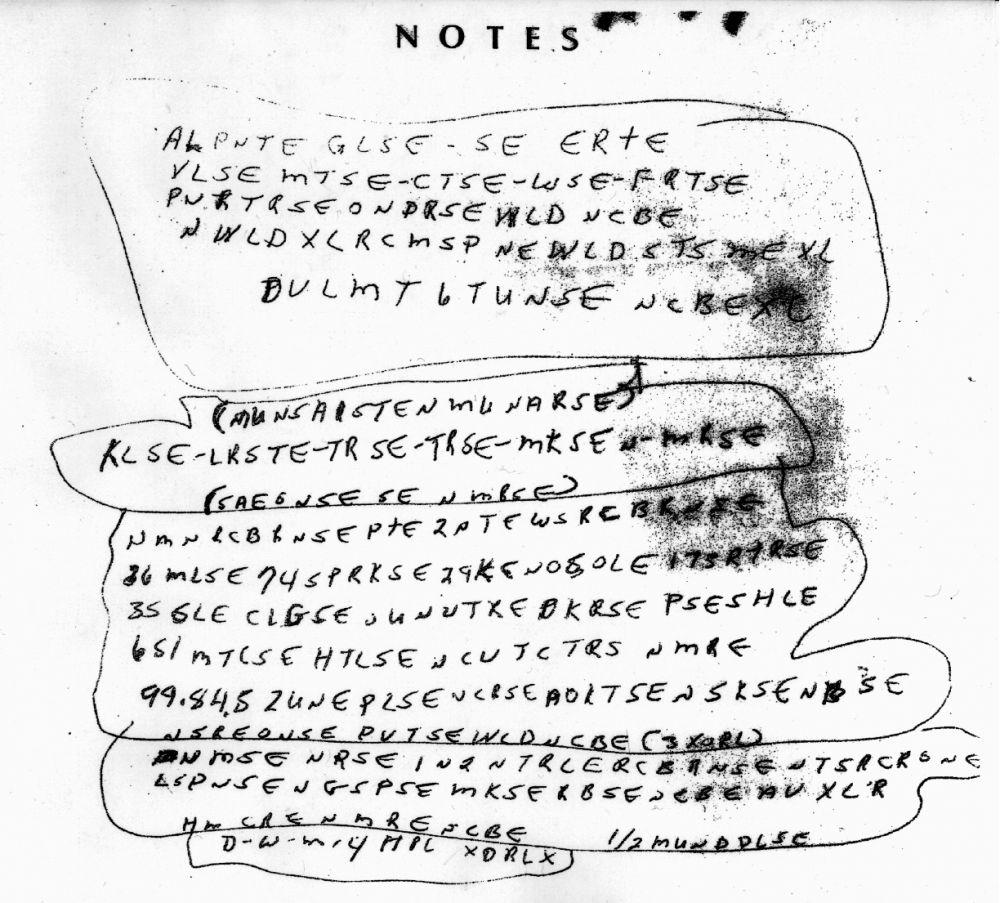 NOTES
ALPNTE GLSE - SE ERTE
VLSE MTSE-CTSE-WSE-FRTSE
PNRTRSEONDRSEWLD NCBE
NWLDXLRCMSP NEWLDSTS MEXL
DULMT 6 TUNSE NCBEXC
(MUNSAISTENMUNARSE)
KLSE-LRSTE-TRSE-TRSE-MKSEN-MRSE
(SAEGNSE SE N MRSE)
NMNRCBRNSEPTE2PTEWSRCBRNSE
36MLSE 74SPRKSE 29KENOSOLE 175RTRSE
35 GLE CLGSE OUNUTXEDKRSE PSESHLE
651 MTCSE HTLSE NCUTCTRS NMRE
99.84.5 2UNEPLSE NCRSE AOKTSE NSKSENBSE
NSREONSE PUTSEWLDNCBE (3XORL)
NMSE NRSE IN2NTRLERCBRNSENTSRCRSNE
LSPNSENGSPSE MKSERBSENCBEAUXLR
HM CRENMRENCBE 1/2MUNDDLSE
D-W-M-4 HPL XDRLX